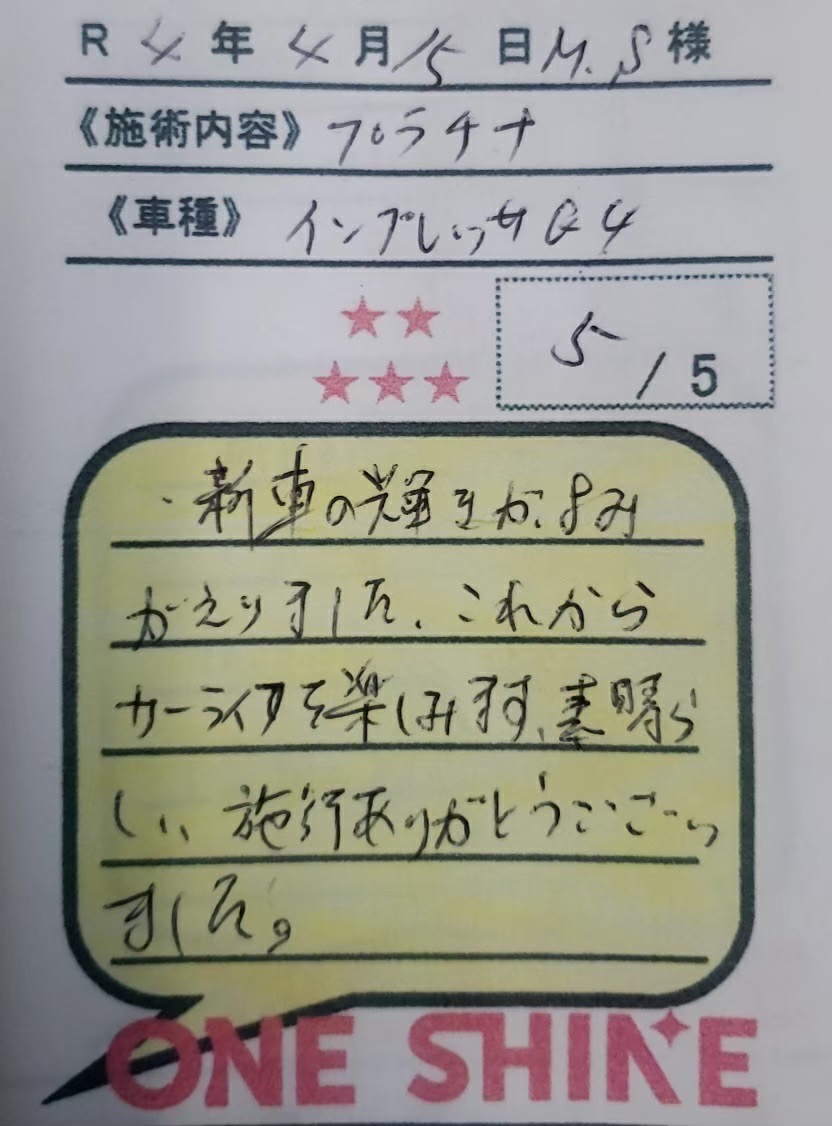 R4年4月15日M.S様
《施術内容》プラチナ
《車種》インプレッサG4
★★
★★★
5/5
・新車の輝きが、よみ
がえりました、これから
カーライフを楽しみます、素晴ら
しい、施行ありがとうござい
ました。
ONE SHINE